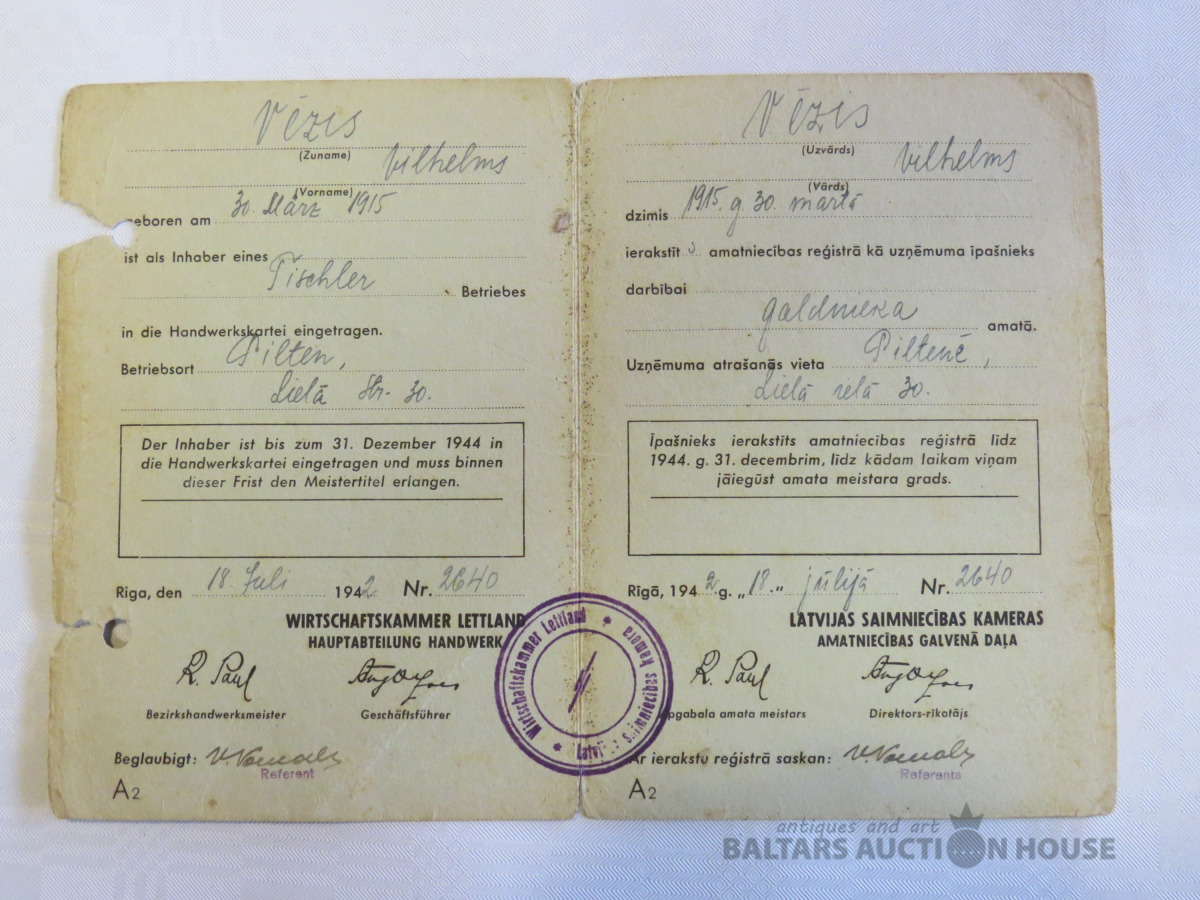 Vēzis
(Zuname)
Vilhelms
(Vorname)
30. März 1915
geboren am
ist als Inhaber eines
Tischler
Betriebes
in die Handwerkskartei eingetragen.
Betriebsort Pilten,
Lielā Str. 30.
Der Inhaber ist bis zum 31. Dezember 1944 in
die Handwerkskartei eingetragen und muss binnen
dieser Frist den Meistertitel erlangen.
Riga, den 18. Juli 1942 Nr. 2640
WIRTSCHAFTSKAMMER LETTLAND
HAUPTABTEILUNG HANDWERK
R. Paul
Bezirkshandwerksmeister Geschäftsführer
Beglaubigt:
Referent
A2
Vēzis
(Uzvārds)
Vilhelms
(Vārds)
dzimis 1915. g. 30. martā
ierakstīts amatniecības reģistrā kā uzņēmuma īpašnieks
darbībai
galdnieka amatā.
Uzņēmuma atrašanās vieta Piltenē,
Lielā ielā 30.
Īpašnieks ierakstīts amatniecības reģistrā līdz
1944. g. 31. decembrim, līdz kādam laikam viņam
jāiegūst amata meistara grads.
Rīgā, 1942. g. „18.“ jūlijā Nr. 2640
LATVIJAS SAIMNIECĪBAS KAMERAS
AMATNIECĪBAS GALVENĀ DAĻA
R. Paul
Apgabala amata meistars Direktors-rīkotājs
Ar ierakstu reģistrā saskan:
Referents
A2
Wirtschaftskammer Lettland
Latvijas Saimniecības kamera
antiques and art
BALTARS AUCTION HOUSE